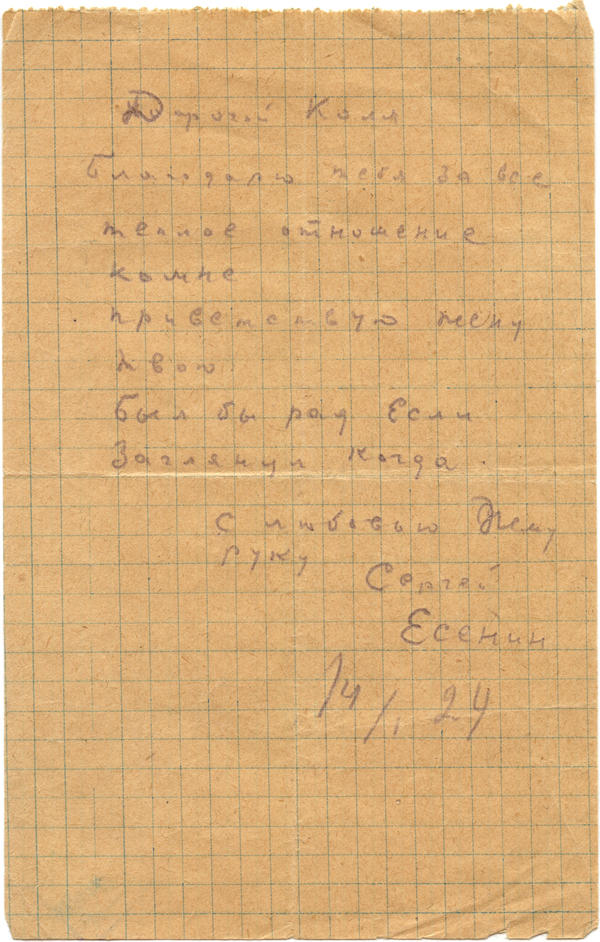 Дорогой Коля
Благодарю тебя за все
теплое отношение
комне
приветствую жену
твою
Был бы рад Если
Заглянул когда.
С любовью Жму
руку
Сергей
Есенин
14/I 24